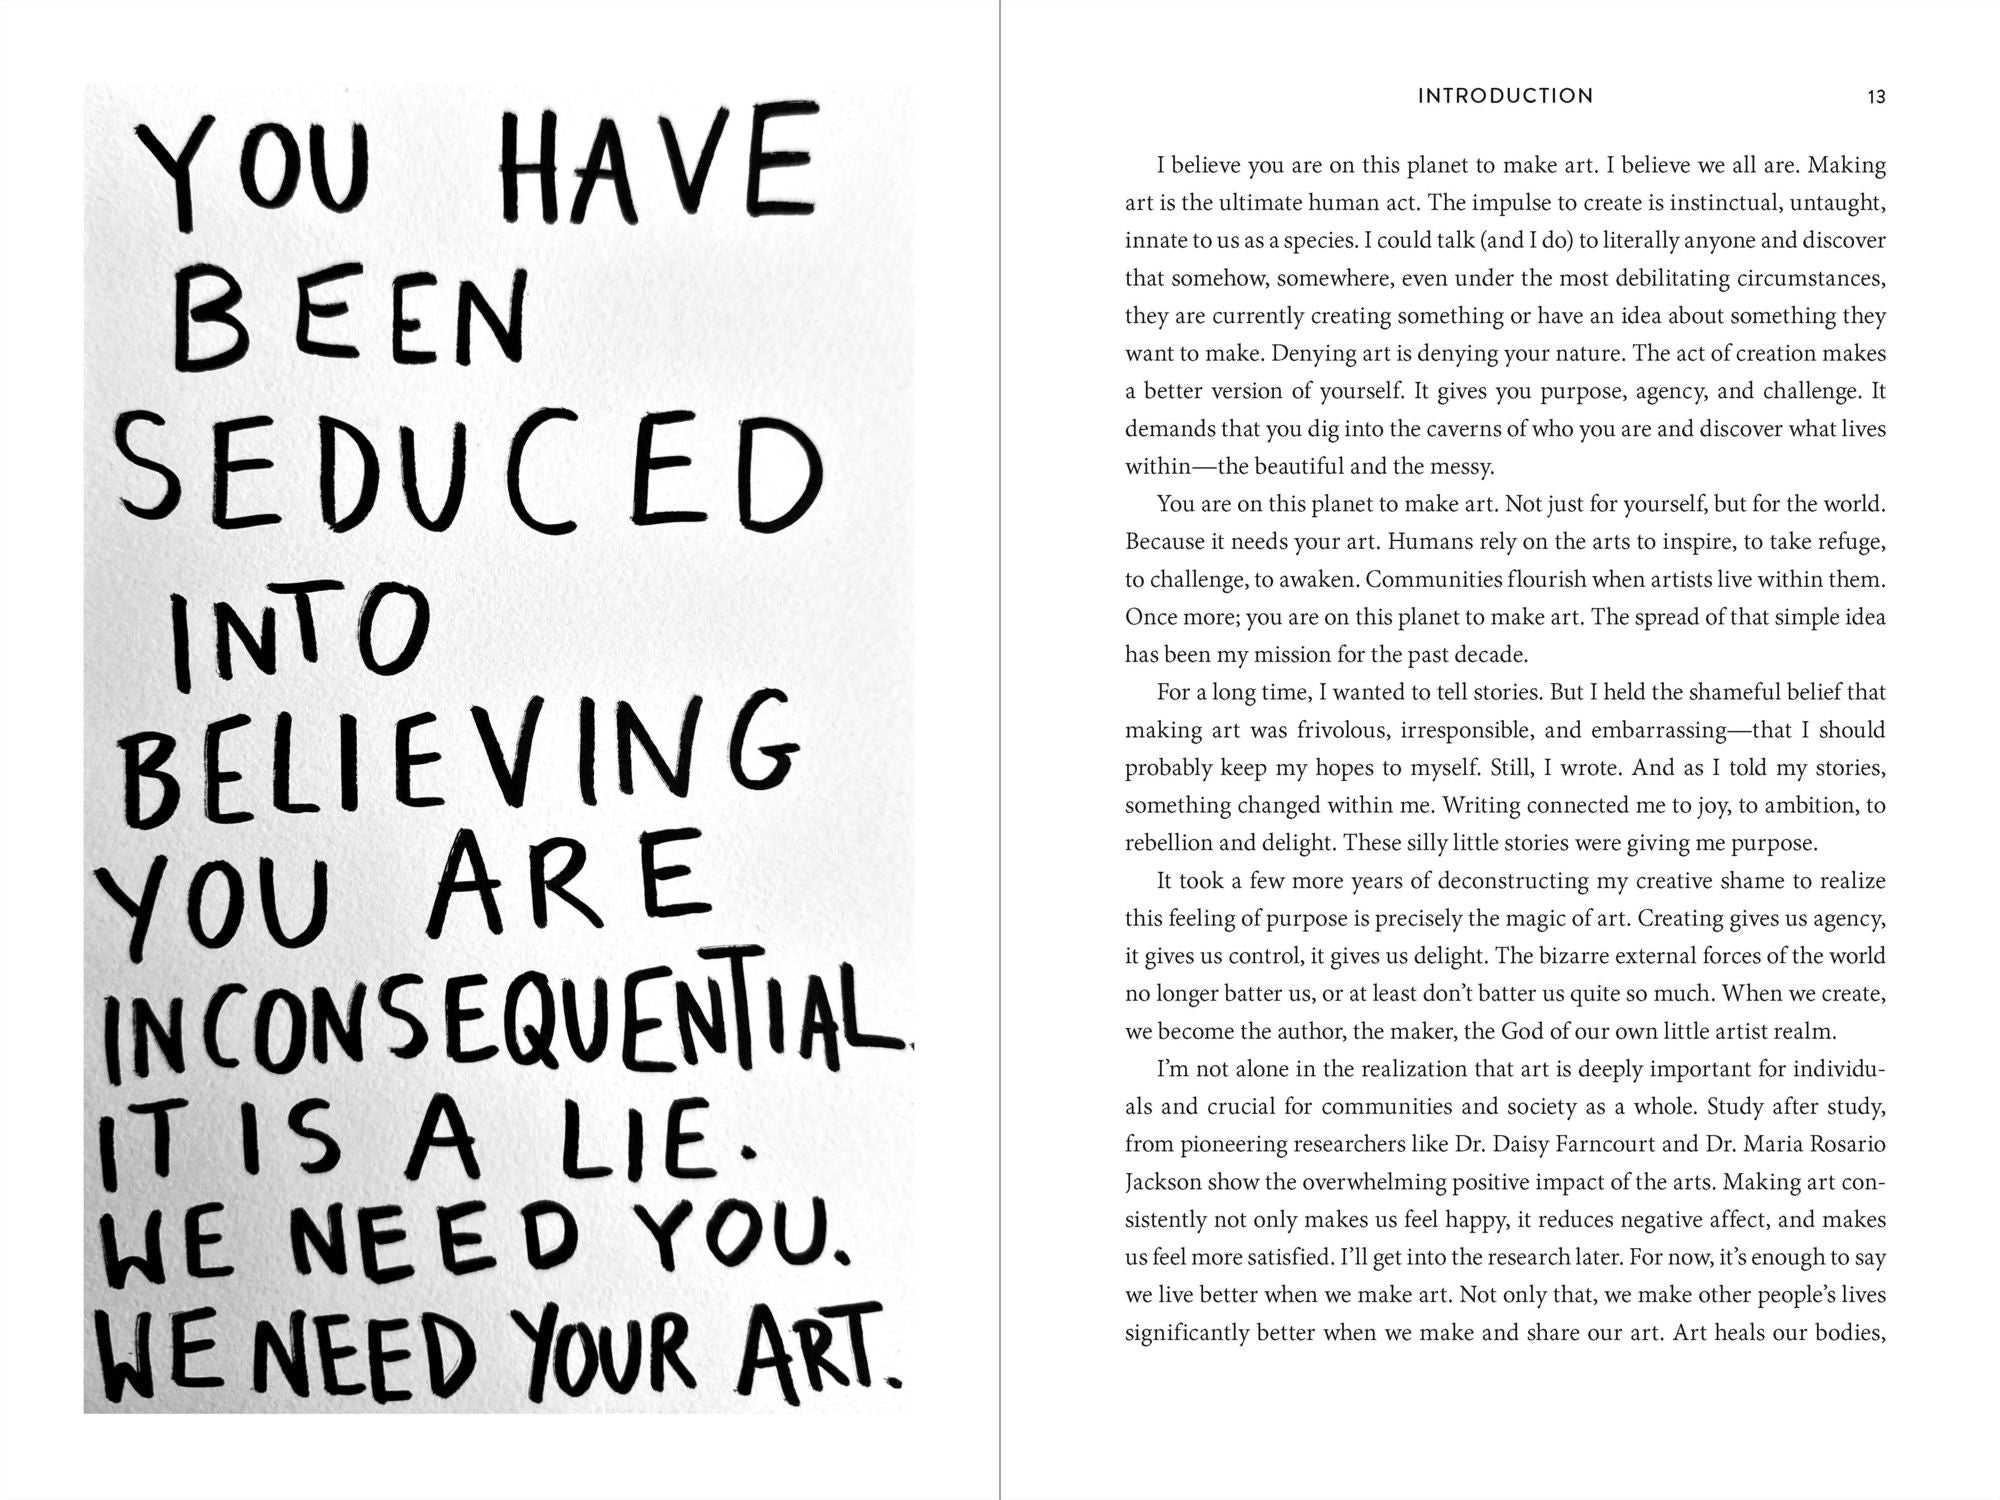 YOU HAVE
BEEN
SEDUCED
INTO
BELIEVING
YOU ARE
INCONSEQUENTIAL.
IT IS A LIE.
WE NEED YOU.
WE NEED YOUR ART.
INTRODUCTION 13
I believe you are on this planet to make art. I believe we all are. Making
art is the ultimate human act. The impulse to create is instinctual, untaught,
innate to us as a species. I could talk (and I do) to literally anyone and discover
that somehow, somewhere, even under the most debilitating circumstances,
they are currently creating something or have an idea about something they
want to make. Denying art is denying your nature. The act of creation makes
a better version of yourself. It gives you purpose, agency, and challenge. It
demands that you dig into the caverns of who you are and discover what lives
within—the beautiful and the messy.
You are on this planet to make art. Not just for yourself, but for the world.
Because it needs your art. Humans rely on the arts to inspire, to take refuge,
to challenge, to awaken. Communities flourish when artists live within them.
Once more; you are on this planet to make art. The spread of that simple idea
has been my mission for the past decade.
For a long time, I wanted to tell stories. But I held the shameful belief that
making art was frivolous, irresponsible, and embarrassing—that I should
probably keep my hopes to myself. Still, I wrote. And as I told my stories,
something changed within me. Writing connected me to joy, to ambition, to
rebellion and delight. These silly little stories were giving me purpose.
It took a few more years of deconstructing my creative shame to realize
this feeling of purpose is precisely the magic of art. Creating gives us agency,
it gives us control, it gives us delight. The bizarre external forces of the world
no longer batter us, or at least don’t batter us quite so much. When we create,
we become the author, the maker, the God of our own little artist realm.
I’m not alone in the realization that art is deeply important for individu-
als and crucial for communities and society as a whole. Study after study,
from pioneering researchers like Dr. Daisy Farncourt and Dr. Maria Rosario
Jackson show the overwhelming positive impact of the arts. Making art con-
sistently not only makes us feel happy, it reduces negative affect, and makes
us feel more satisfied. I’ll get into the research later. For now, it’s enough to say
we live better when we make art. Not only that, we make other people’s lives
significantly better when we make and share our art. Art heals our bodies,